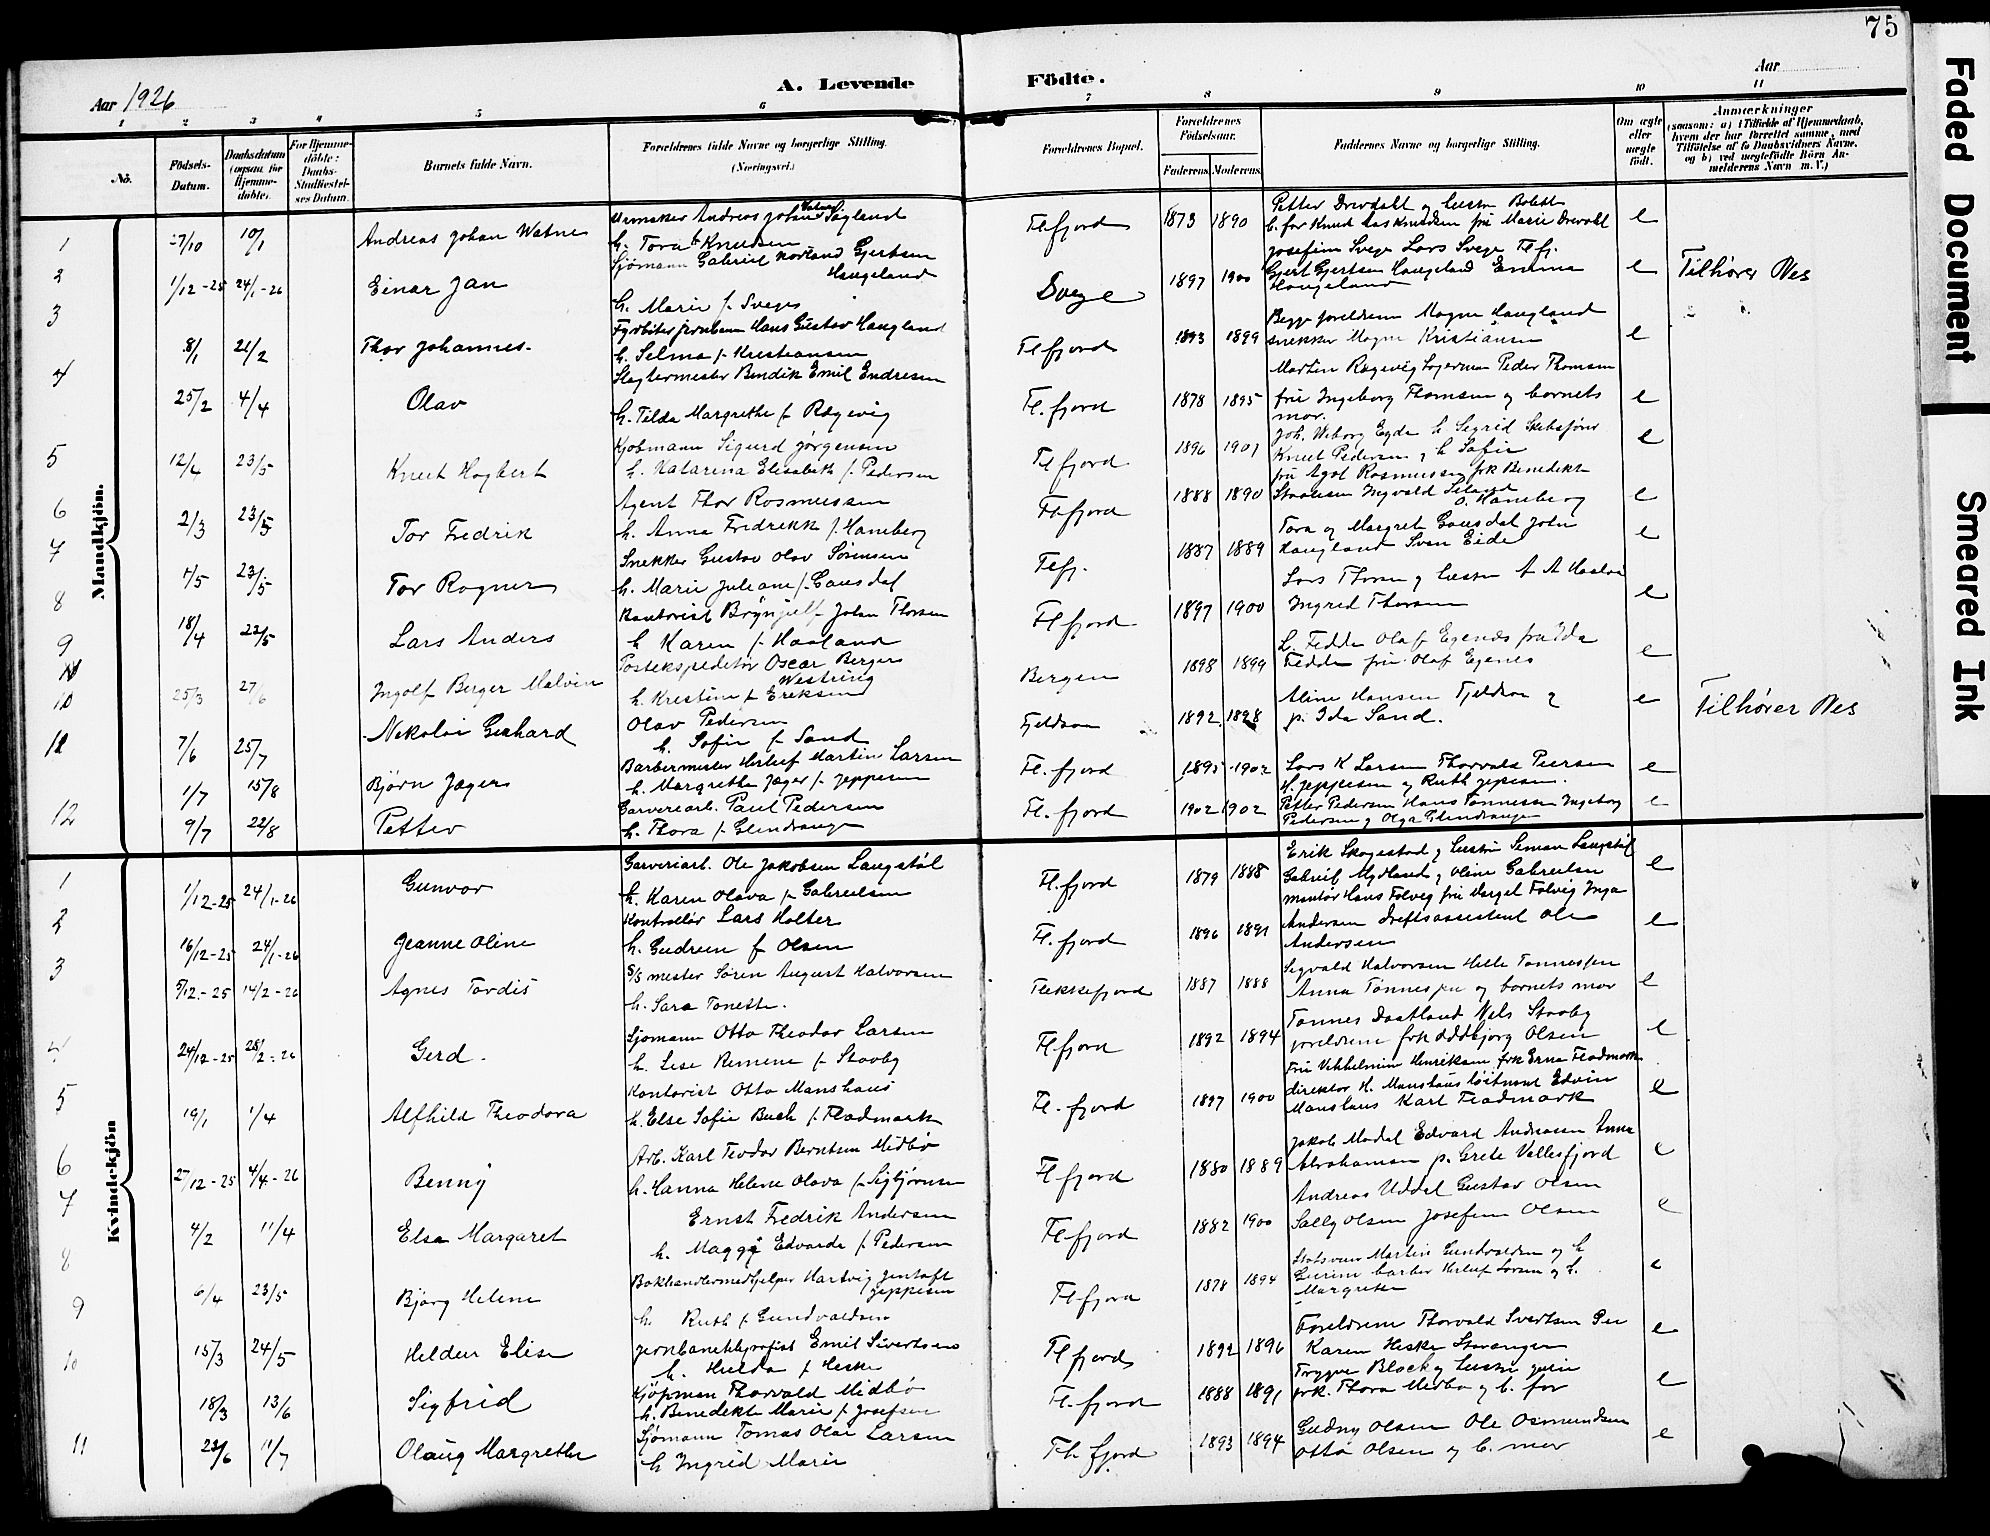 75
Faded Document
Smeared Ink
Aar 1926
A. Levende
Födte.
Aar
1 2 3 4 5 6 7 8 9 10 11
Nö.
Födsels-Datum.
Daabsdatum (ogsaa for Hjemme-döbte).
For Hjemme-döbte: Daabs-Stadfæstel-ses Datum.
Barnets fulde Navn.
Forældrenes fulde Navne og borgerlige Stilling. (Næringsvei.)
Forældrenes Bopæl.
Forældrenes Födselsaar.
Faderens Moderens
Faddernes Navne og borgerlige Stilling.
Om ægte eller uægte födt.
Anmærkninger (saasom: a) i Tilfælde af Hjemmedaab, hvem der har forrettet samme, med Tilföielse af to Daabsvidners Navne, og b) ved uægtefödte Börn Anmelderens Navn m. V.)
Mandkjön.
1 27/10 10/1 Andreas Johan Watne
Urmaker Andreas Johan Watne Sægland
h. Tora f. Knudsen
Flfjord 1873 1890
Petter Drevdalt og hustru Bolette
b. far Knud Aas Knudsen fru Marie Drevdalt
e
2 1/12-25 24/1-26 Einar Jan
Sjömann Gabriel Norland Gjertsen Haugeland
h. Marie f. Svege
Svege 1897 1900
Josefine Svege Lars Svege Flfj.
Gjert Gjertsen Haugeland Emma Haugeland
e Tilhører Nes
3 8/1 21/2 Thor Johannes
Fyrbøter jernban Hans Gustav Haugland
h. Selma f. Kristiansen
Flfjord 1893 1899
Begge foreldrene Magne Haugland
snekker Magne Kristiansen
e
4 25/2 4/4 Olav
Slagtermester Bendik Emil Endresen
h. Tilda Margrethe f. Rægevig
Fl. fjord 1878 1895
Martin Rægevig Peder Thomsen
fru Ingeborg Thomsen og barnets mor.
e
5 12/4 23/5 Knut Hagbert
Kjøbmann Sigurd Jørgensen
h. Katarina Elisabeth f. Pedersen
Flfjord 1896 1901
Joh. Weborg Egde h. Sigrid
Knut Pedersen og h. Sofie
e
6 2/3 23/5 Tor Fredrik
Agent Thor Rosmussen
h. Anna Fredrikk f. Haneberg
Flfjord 1888 1890
fru Agot Rasmussen frk Benedikte
Ingvald Seland O. Haneberg
e
7 1/5 23/5 Tor Ragner
Snekker Gustav Olav Sørensen
h. Marie Juliane f. Gausdal
Flfj. 1887 1889
Tora og Margret Gausdal John
Haugland Sven Eide
e
8 18/4 23/5 Lars Anders
Kontorist Brynjulf Johan Thorsen
h. Karen f. Haaland
Flfjord 1897 1900
Lars Thorsen og hustru A A Haaland
Ingrid Thorsen
e
9 25/3 27/6 Ingolf Berger Malvin
Postekspeditør Oscar Berger Westring
h. Kristine f. Eriksen
Bergen 1898 1899
L. Fedde Olaf Egenes fru Ida
Fedde fru Olaf Egenes
e
10 7/6 25/7 Nikolai Gerhard
Olav Pedersen
h. Sofie f. Sand
Fjeldsaa 1892 1898
Aline Hansen Fjeldsaa og
p. Ida Sand.
e Tilhører Nes
11 1/7 15/8 Bjørn Jæger
Barbermester Herluf Martin Larsen
h. Margrethe Jæger f. Jeppesen
Fl. fjord 1895 1902
Lars K Larsen Thorvald Peersen
H. Jeppesen og Ruth Jeppesen.
e
12 9/7 22/8 Petter
Garveriarb. Paul Pedersen
h. Thora f. Glendrange
Fl. fjord 1902 1902
Petter Pedersen Hans Tønnessen Ingeborg
Pedersen og Olga Glendrange
e
Kvindekjön
1 1/12-25 24/1-26 Gunvor
Garveriarb. Ole Jakobsen Langstøl
h. Karen Olava f. Gabrielsen
Fl. fjord 1879 1888
Erik Skogestad og hustru Simon Langstøl
Gabriel Mydland og Oline Gabrielsen
e
2 16/12-25 24/1-26 Jeanne Oline
Kontrollør Lars Holter
h. Gudrun f Olsen
Fl. fjord 1896 1891
montør Hans Følvig fru Margot Følvig Inga
Andersen driftsassistent Ole
Andersen
e
3 5/12-25 14/2-26 Agnes Tordis
S/S mester Søren August Halvorsen
h. Sara Tonette.
Flekkefjord 1887 1888
Sigvald Halvorsen Helle Tønnessen
Anna Tønnessen og barnets mor
e
4 24/12-25 28/2-26 Gerd.
Sjømann Otto Theodor Larsen
h. Lise Remene f. Stavby
Flfjord 1892 1894
Tønnes Daatland Nels Stavby
foreldrene frk Oddbjørg Olsen
e
5 19/1 1/4 Alfhild Theodora
Kontorist Otto Manshaus
h. Else Sofie Buch f. Flødmark
Fl. fjord 1897 1900
Fru Vilhelmine Henriksen frk Erna Flødmark
direktør H. Manshaus løitnant Edvin
Manshaus Karl Flødmark
e
6 27/12-25 4/4-26 Benny
Arb. Karl Teodor Berntsen Midbø
h. Hanna Helene Olava f. Sigbjørnsen
Flfjord 1880 1889
Jakob Modal Edvard Andreasen Anna
Abrahamsen p. Grete Vollesfjord
e
7 4/2 11/4 Elsa Margaret
Ernst Fredrik Andersen
h. Maggy Edvarda f. Pedersen
Flfjord 1882 1900
Andreas Uddal Gustav Olsen
Sally Olsen Josefine Olsen
e
8 6/4 23/5 Bjørg Helene
Bokhandlermedhjelper Hartvig Jentoft Jeppesen
h. Ruth f. Gundvaldsen
Flfjord 1878 1894
Martin Gundvaldsen og h.
barber Herluf Larsen og h.
Margrethe
e
9 15/3 24/5 Heldur Elise
Jernbanetelegrafist Emil Sivertsen
h. Hulda f. Heske
Flfjord 1892 1896
Foreldrene Thorvald Svertsen Per
Karen Heske Stavanger
e
10 18/3 13/6 Sigfrid
Kjøpman Thorvald Midbø
h. Benedikte Marie f. Josefsen
Fl. fjord 1888 1891
Trygve Block og hustru
frk. Thora Midbø og b. far
e
11 23/6 11/7 Olaug Margrethe
Sjømann Tomas Olai Larsen
h Ingrid Marie
Flfjord 1893 1894
Gudny Olsen Ole Osmundsen
Otto Olsen og b. mor
e